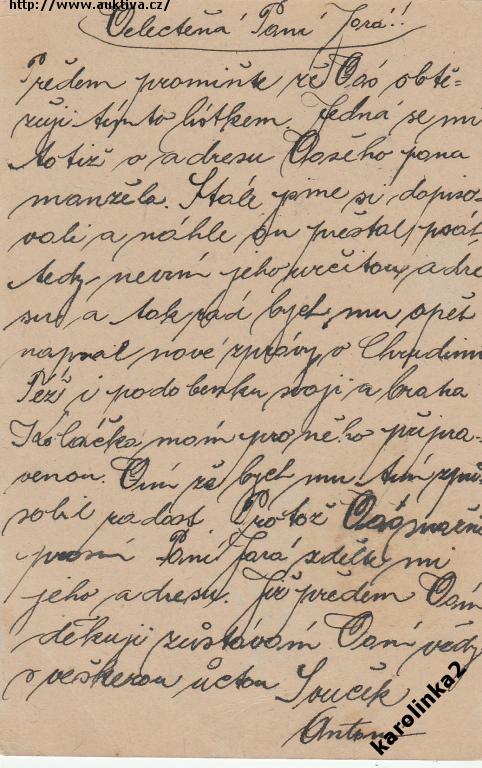 http://www.auktiva.cz/
Velectěná Paní Jará!!
Předem promiňte že Vás obtě-
žuji tímto lístkem. Jedná se mi
totiž o adresu Vašeho pana
manžela. Stále jsme si dopiso-
vali a náhle on přestal psát
tedy nevím jeho určitou adre
su a tak rád bych mu opět
napsal nové zprávy o Chrudimi
Též i podobenku svoji a brata
Koláčka mám pro něho připra-
venou. Vím že bych mu tím způ-
sobil radost Protož Vás snažně
prosím Paní Jará sdělte mi
jeho adresu. Již předem Vám
děkuji zůstávám Vámi vždy
s veškerou úctou Souček
Anton
karolinka2